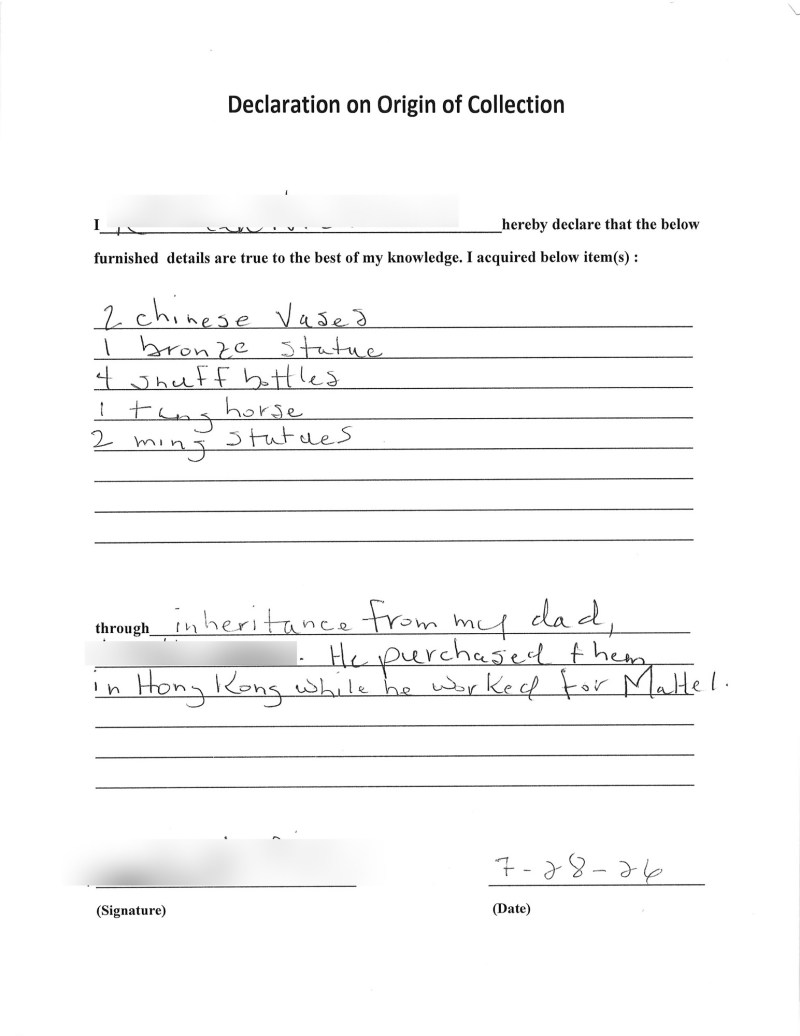 Declaration on Origin of Collection
I hereby declare that the below
furnished details are true to the best of my knowledge. I acquired below item(s) :
2 chinese Vases
1 bronze statue
4 snuff bottles
1 tang horse
2 ming statues
through inheritance from my dad,
. He purchased them
in Hong Kong while he worked for Mattel.
7-28-26
(Signature) (Date)